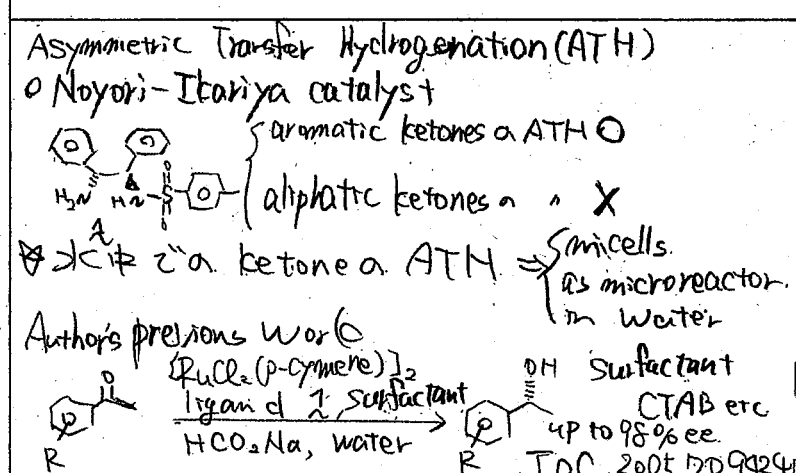 Asymmetric Transfer Hydrogenation (ATH)
○ Noyori-Ikariya catalyst
aromatic ketones の ATH ○
H₂N HN S O O
aliphatic ketones の 〃 ×
1
☆ 水中での ketone の ATH ⇒ micells
as microreactor.
in water
Author's previous work
[RuCl₂(p-cymene)]₂
ligand 1, surfactant
HCO₂Na, water
O R
OH R
surfactant
CTAB etc
up to 98% ee.
JOC, 2005